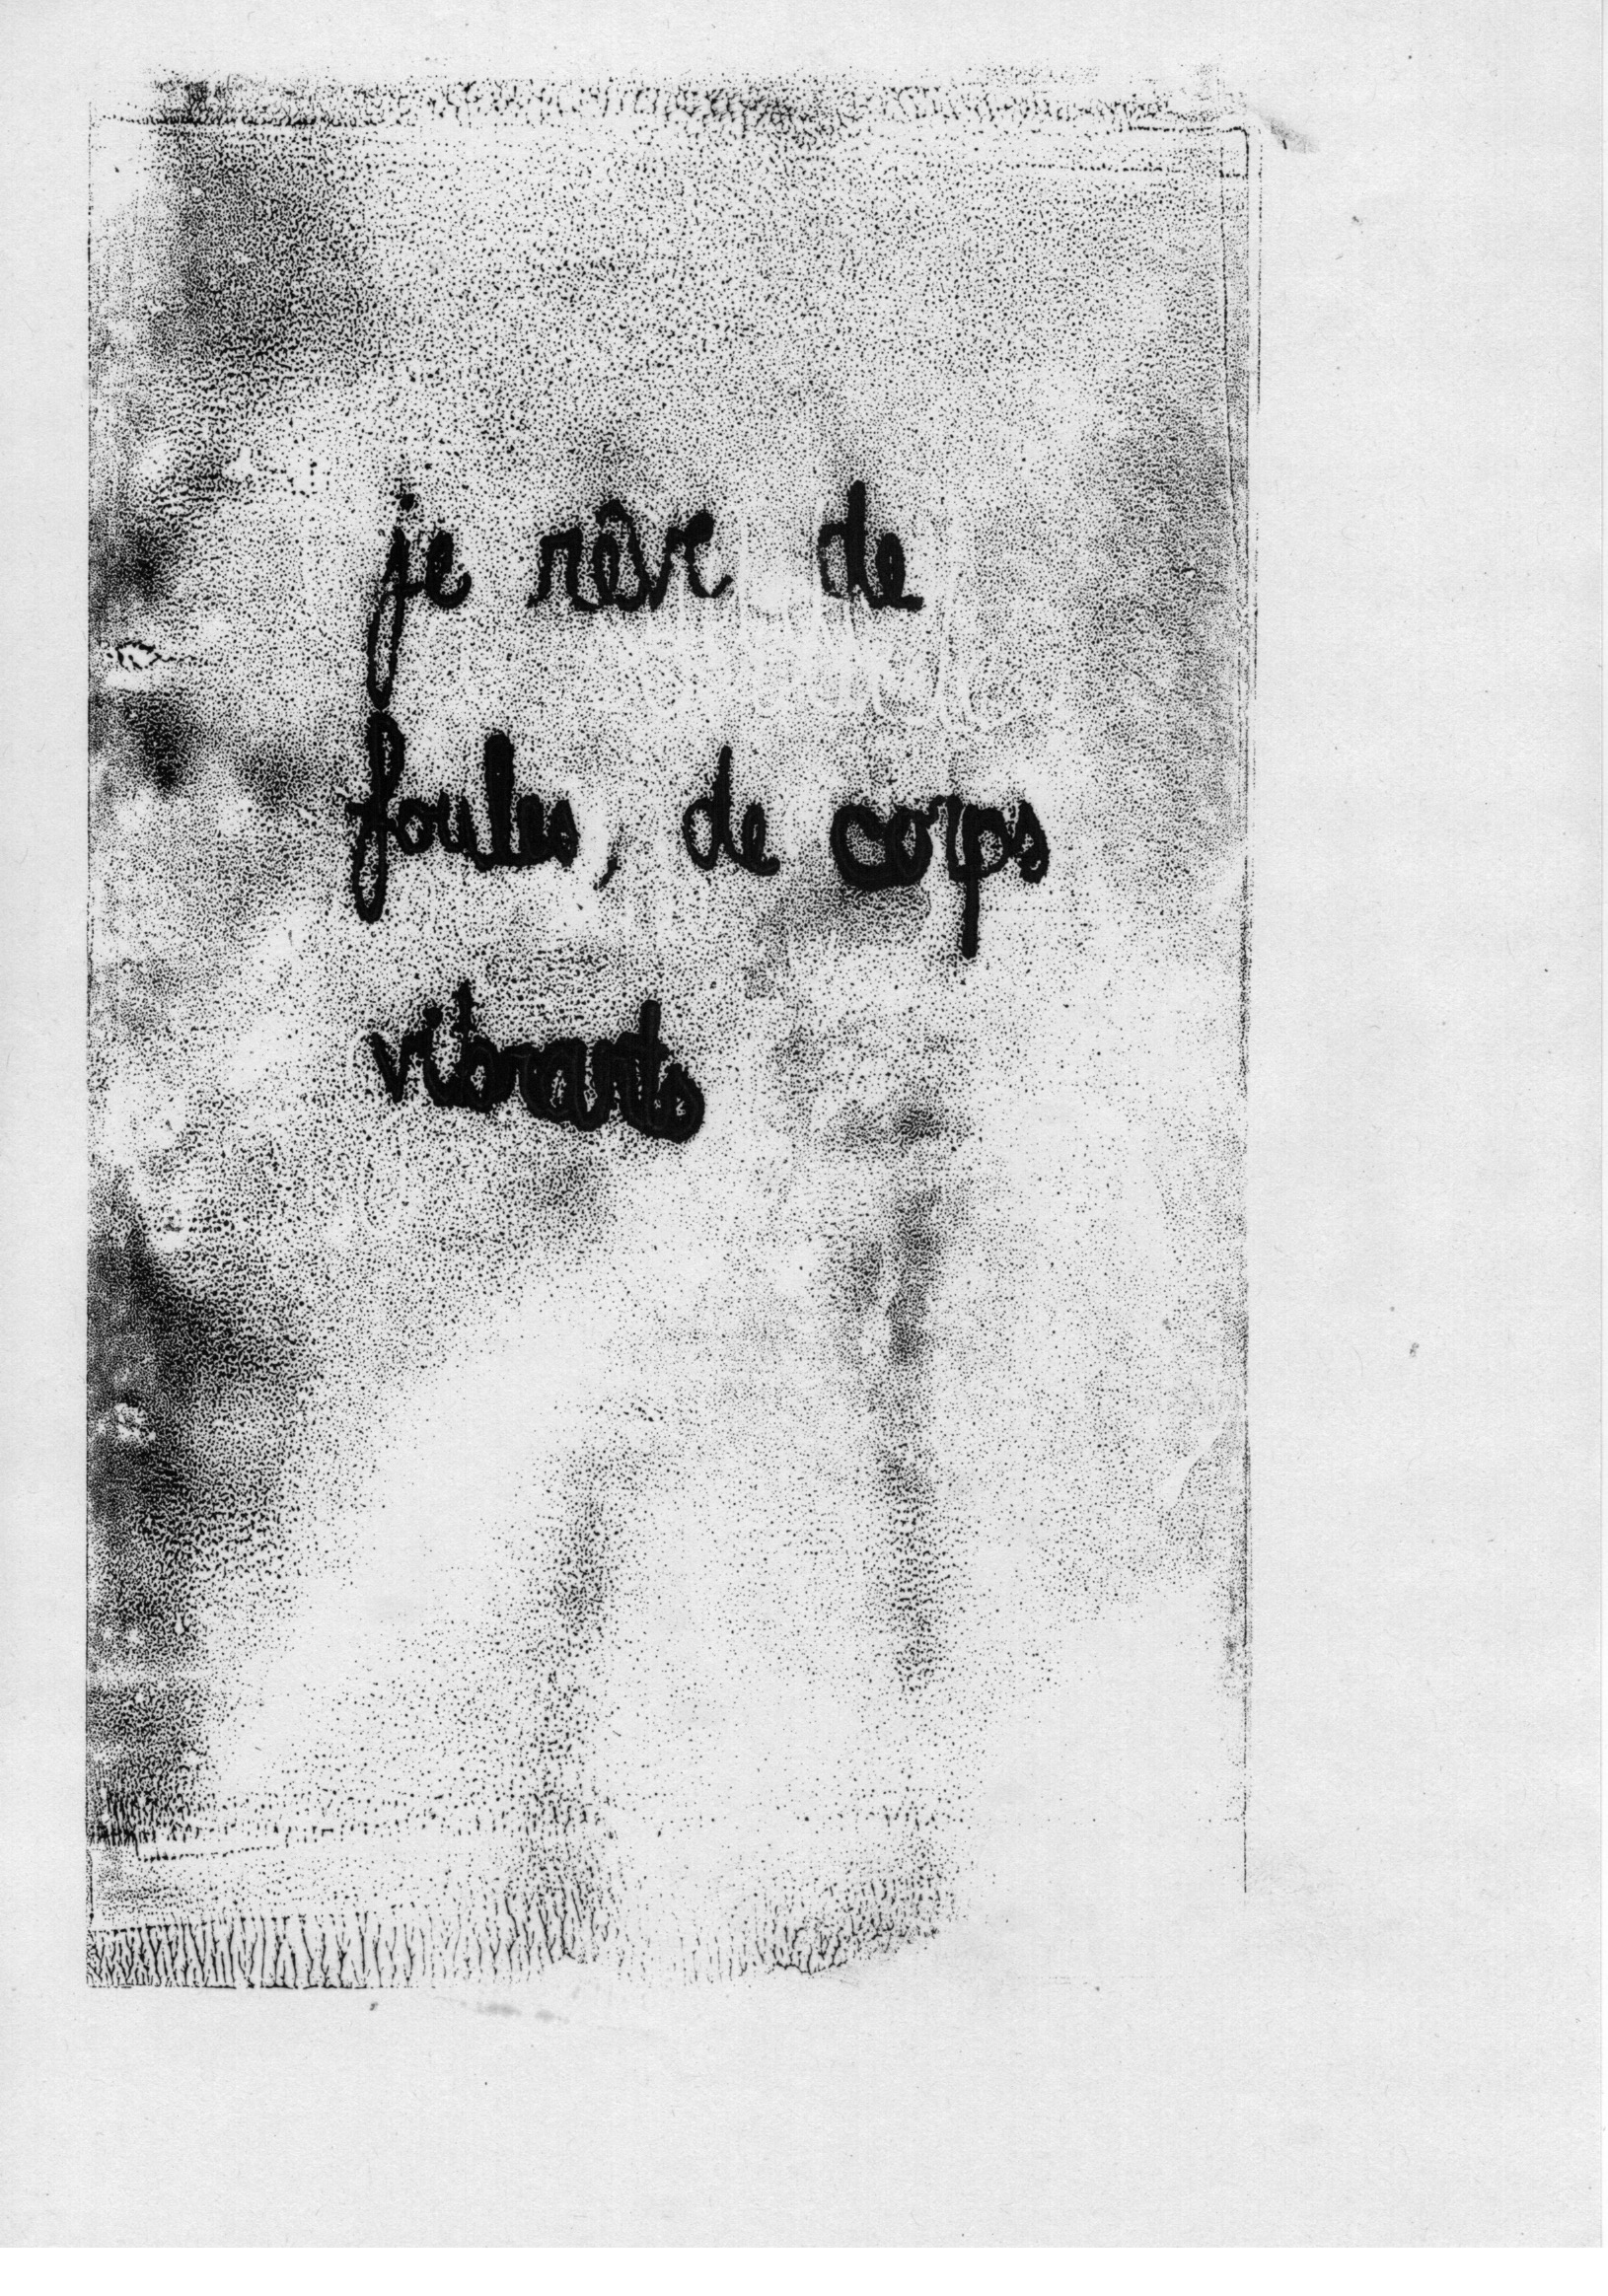 je rêve de
foules, de corps
vibrants